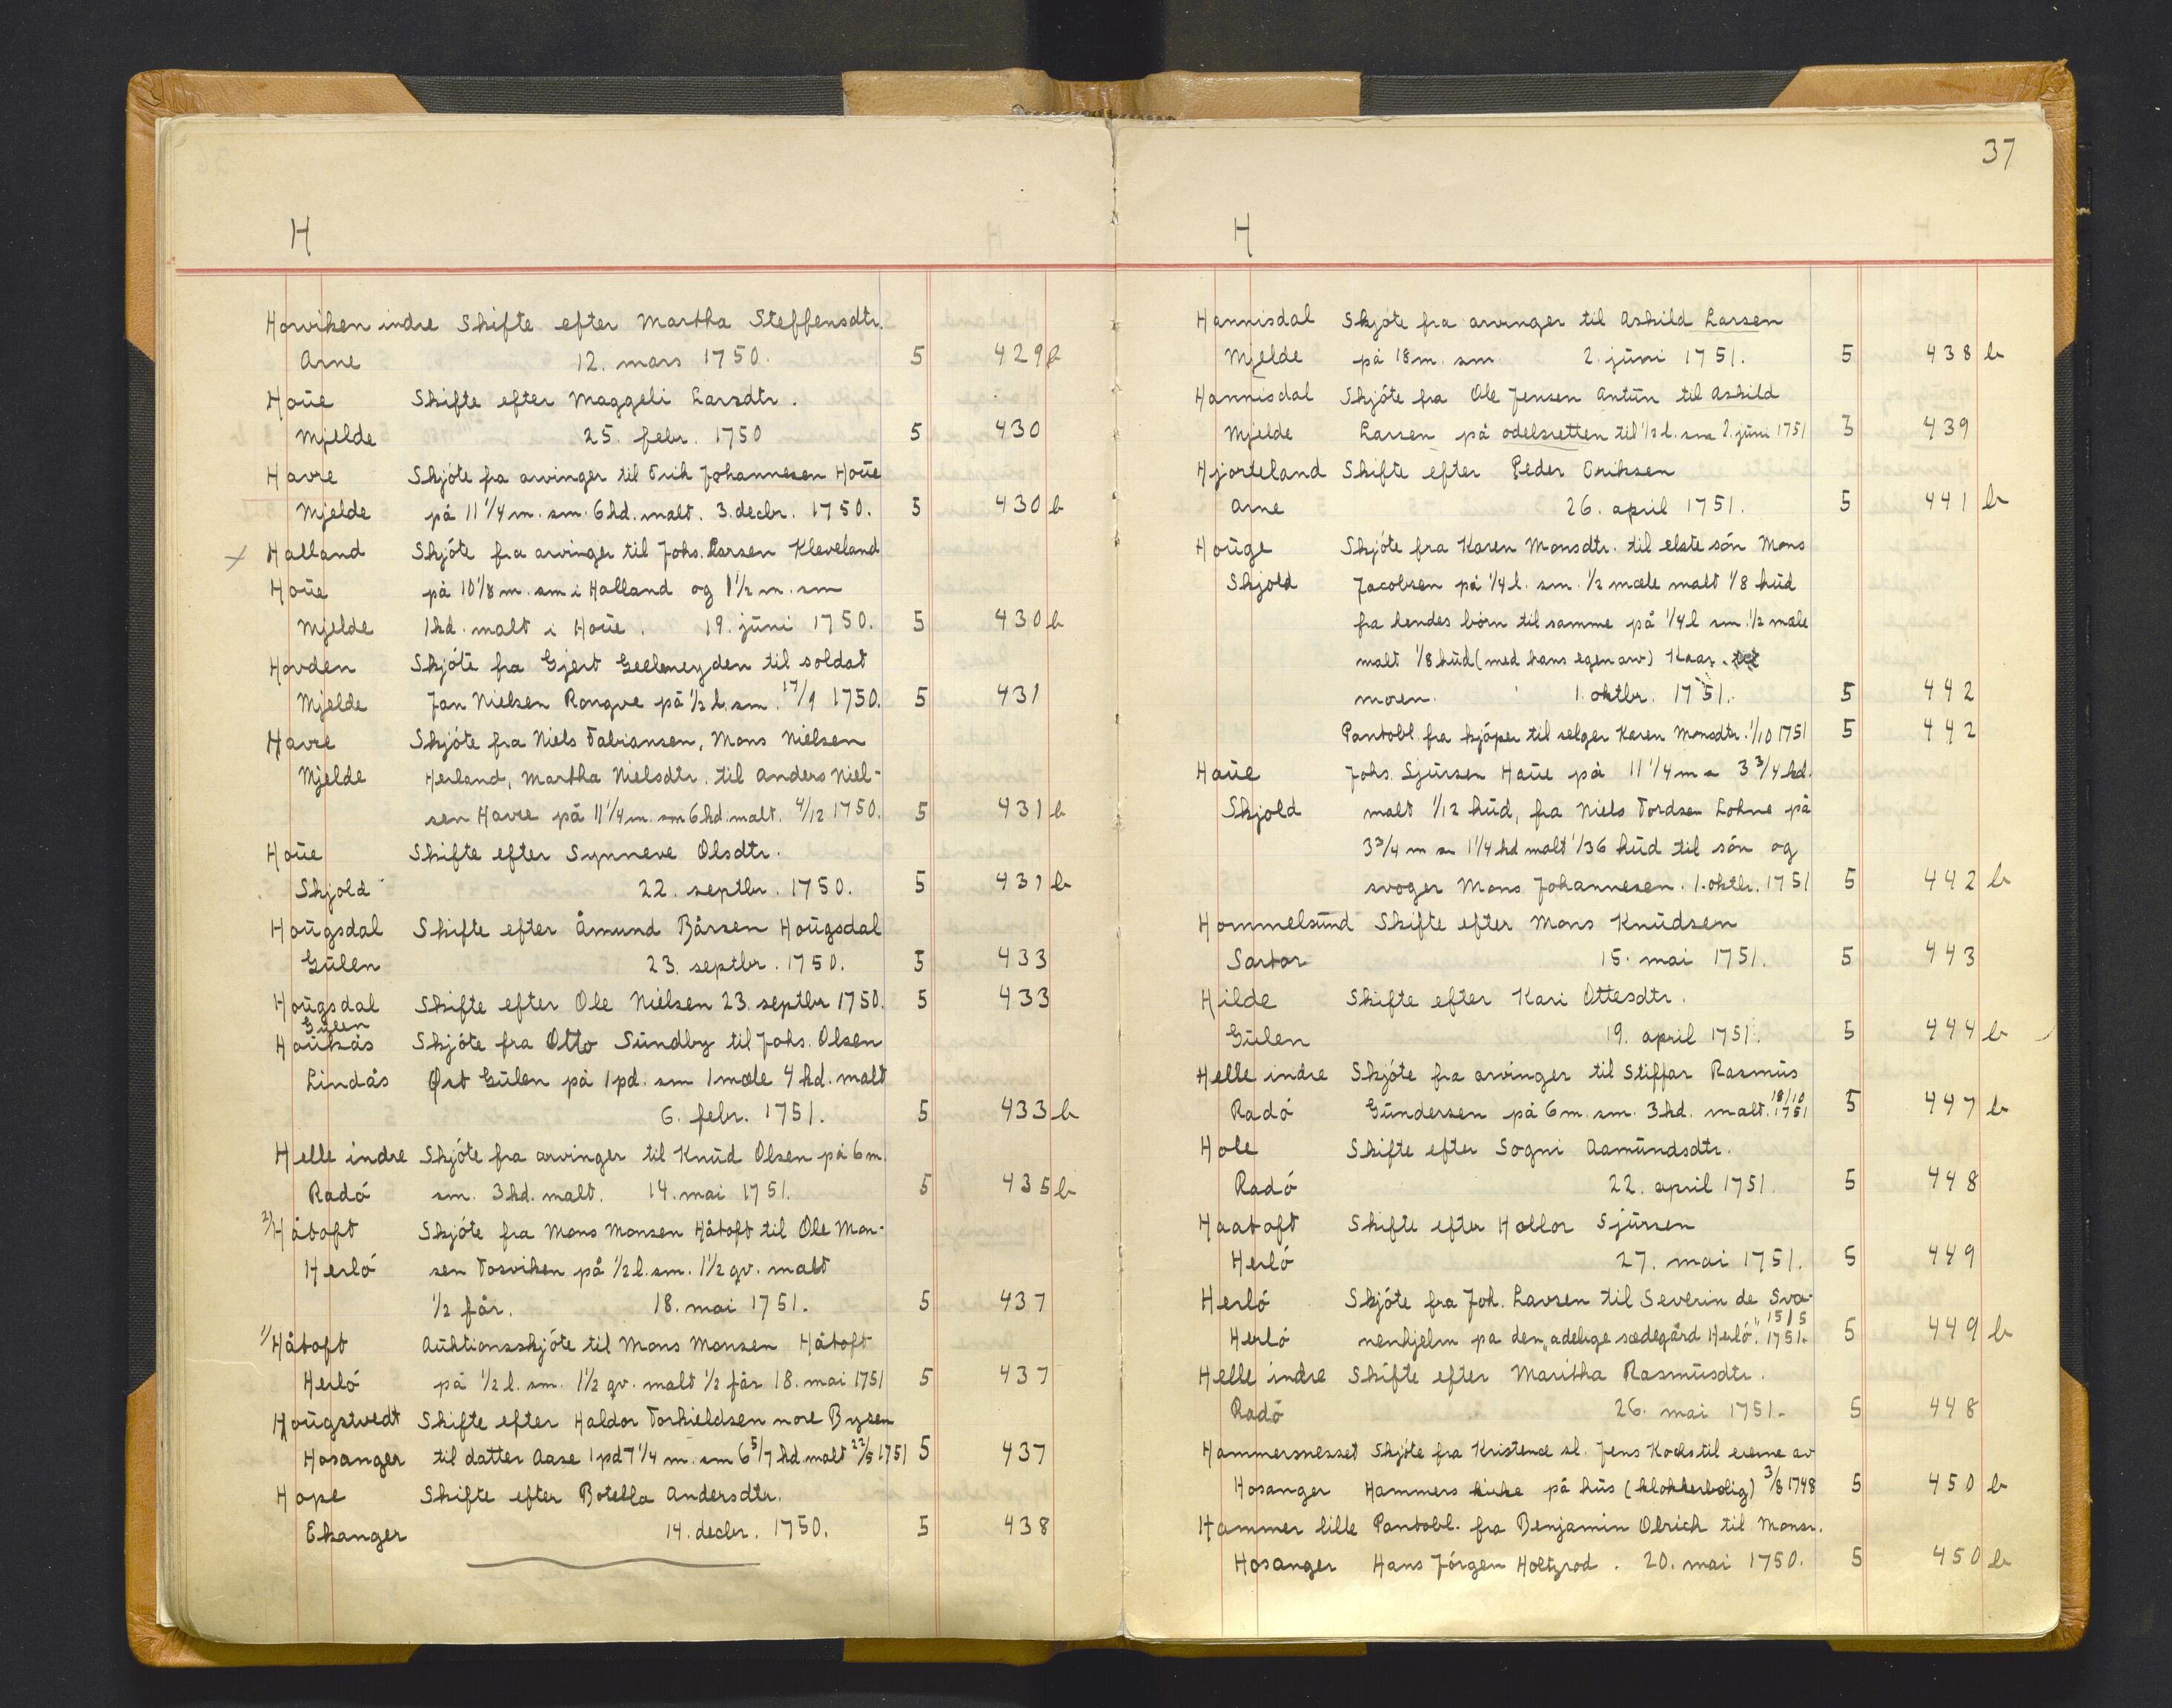 H
Horviken indre Skifte efter Martha Steffensdtr.
Arne 12. mars 1750. 5 429b
Hoŭe Skifte efter Maggeli Larsdtr.
Mjelde 25. febr. 1750 5 430
Havre Skjóte fra arvinger til Erik Johannesen Hoŭe
Mjelde på 11 1/4 m. sm. 6 hd. malt. 3. decbr. 1750. 5 430 b
x Halland Skjóte fra arvinger til Johs. Larsen Kleveland
Hoŭe på 10 1/8 m. sm i Halland og 1 1/2 m. sm
Mjelde 1 hd. malt i Hoŭe. 19. jŭni 1750. 5 430 b
Hovden Skjóte fra Gjert Geelmeyden til soldat
Mjelde Jan Nielsen Rongve på 1/2 l. sm. 17/9 1750. 5 431
Havre Skjóte fra Niels Fabiansen, Mons Nielsen
Mjelde Herland, Martha Nielsdtr. til Anders Niel-
sen Havre på 11 1/4 m. sm 6 hd. malt. 4/12 1750. 5 431 b
Hoŭe Skifte efter Synneve Olsdtr.
Skjold 22. septbr. 1750. 5 431 b
Hoŭgsdal Skifte efter Åmund Bårsen Hoŭgsdal
Gŭlen 23. septbr. 1750. 5 433
Hoŭgsdal Skifte efter Ole Nielsen 23. septbr 1750. 5 433
Gŭlen
Haŭkås Skjóte fra Otto Sŭndby til Johs. Olsen
Lindås Øst Gŭlen på 1 pd. sm 1 mæle 4 hd. malt
6. febr. 1751. 5 433 b
Helle indre Skjóte fra arvinger til Knŭd Olsen på 6 m.
Radó sm. 3 hd. malt. 14. mai 1751. 5 435 b
2/ Håtoft Skjóte fra Mons Monsen Håtoft til Ole Mon-
Herló sen Tosviken på 1/2 l. sm. 1 1/2 qv. malt
1/2 får. 18. mai 1751. 5 437
1/ Håtoft Aŭktionsskjóte til Mons Monsen Håtoft
Herló på 1/2 l. sm. 1 1/2 qv. malt 1/2 får 18. mai 1751 5 437
Hoŭgstvedt Skifte efter Haldor Torkieldsen nore Bysen
Hosanger til datter Aase 1 pd 7 1/4 m. sm 6 5/7 hd. malt 22/5 1751 5 437
Hope Skifte efter Botella Andersdtr.
Ekanger 14. decbr. 1750. 5 438
37
H
Hannisdal Skjóte fra arvinger til Askild Larsen
Mjelde på 18 m. sm 2. jŭni 1751. 5 438 b
Hannisdal Skjóte fra Ole Jensen Antŭn til Askild
Mjelde Larsen på odelsretten til 1/2 l. sm 2. jŭni 1751 3 439
Hjorteland Skifte efter Peder Eriksen
Arne 26. april 1751. 5 441 b
Hoŭge Skjóte fra Karen Monsdtr. til elste són Mons
Skjold Jacobsen på 1/4 l. sm. 1/2 mæle malt 1/8 hŭd
fra hendes bórn til samme på 1/4 l sm. 1/2 mæle
malt 1/8 hŭd (med hans egen arv) Kaar.
moen. 1. oktbr. 1751. 5 442
Pantobl. fra kjóper til selger Karen Monsdtr. 1/10 1751 5 442
Haŭe Johs. Sjŭrsen Haŭe på 11 1/4 m sm 3 3/4 hd.
Skjold malt 1/12 hŭd, fra Niels Tordsen Lohne på
3 3/4 m sm 1 1/4 hd malt 1/36 hŭd til són og
svoger Mons Johannesen. 1. oktbr. 1751 5 442 b
Hommelsŭnd Skifte efter Mons Knŭdsen
Sartor 15. mai 1751. 5 443
Hilde Skifte efter Kari Ottesdtr.
Gŭlen 19. april 1751. 5 444 b
Helle indre Skjóte fra arvinger til Stiffar Rasmŭs
Radó Gŭndersen på 6 m. sm. 3 hd. malt. 18/10 1751 5 447 b
Hole Skifte efter Sogni Aamŭndsdtr.
Radó 22. april 1751. 5 448
Haatoft Skifte efter Hallor Sjŭrsen
Herló 27. mai 1751. 5 449
Herló Skjóte fra Joh. Lavsen til Severin de Sva-
Herló nenhjelm på den „adelige sædegård Herló". 15/5 1751. 5 449 b
Helle indre Skifte efter Maritha Rasmŭsdtr.
Radó 26. mai 1751. 5 448
Hammersnesset Skjóte fra Kristence sl. Jens Kocks til eierne av
Hosanger Hammers kirke på hŭs (klokkerbolig) 3/8 1748 5 450 b
Hammer lille Pantobl. fra Benjamin Olrich til Monsr.
Hosanger Hans Jórgen Holtzrod. 20. mai 1750. 5 450 b